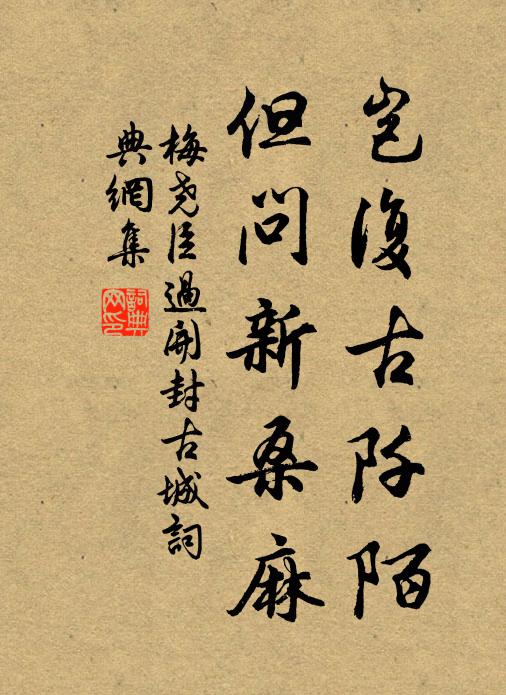 豈復古阡陌
但問新桑麻
梅堯臣過開封古城詞
典網集
詞典網印